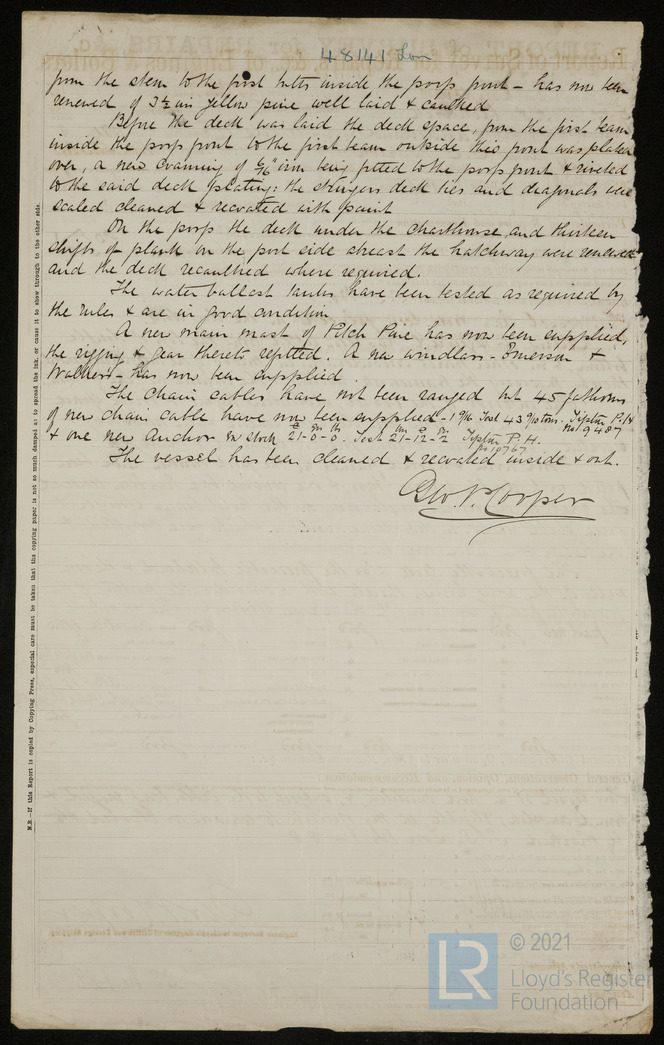 48141 Lon
from the stem to the first bitts inside the poop front - has now been
renewed of 3½ ins yellow pine well laid & caulked
Before the deck was laid the deck space, from the first beam
inside the poop front to the first beam outside this front was plated
over, a new coaming of 6/16" iron being fitted to the poop front & riveted
to the said deck plating: the stringers deck ties and diagonals were
scaled cleaned & recoated with paint
On the poop the deck under the charthouse, and thirteen
shifts of plank on the port side abreast the hatchway were renewed
and the deck recaulked where required.
The water ballast tanks have been tested as required by
the rules & are in good condition
A new main mast of Pitch Pine has now been supplied,
the rigging & gear thereto refitted. A new windlass - Emerson &
Walkers - has now been supplied.
The chain cables have not been ranged but 45 fathoms
of new chain cable have now been supplied - 1 9/16 Test 43 9/10 tons. Tipton P.H
No 9487
& one new Anchor Ex Stock 21-0-0. Test 21-12-2 Tipton P.H.
No 10767
The vessel has been cleaned & recoated inside & out.
Geo. P. Cooper
N.B.—If this Report is copied by Copying Press, especial care must be taken that the copying paper is not so much damped as to spread the ink, or cause it to show through to the other side.
LR
© 2021
Lloyd's Register
Foundation